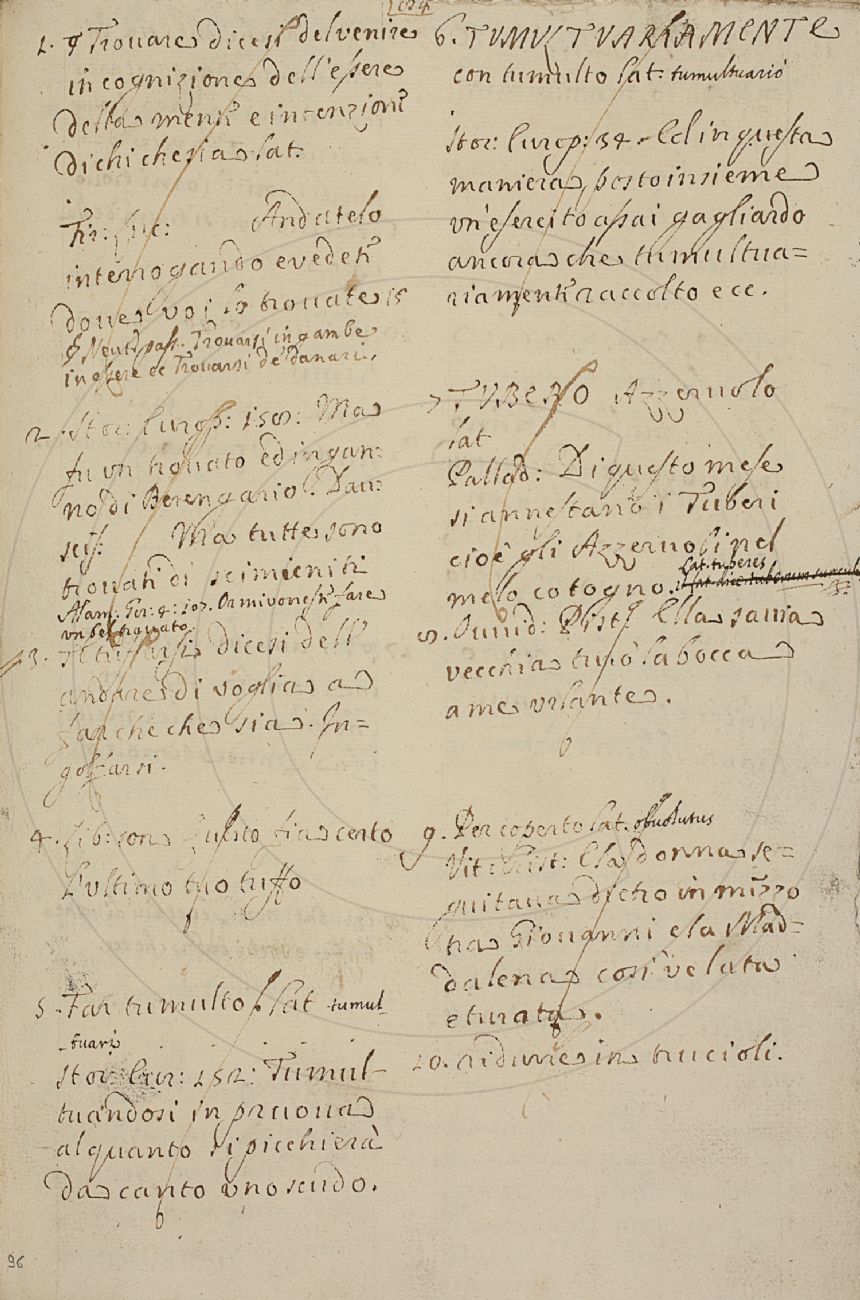 1. Trouare dicesi del venire
in cognizione dell'essere
della mente e intenzioni
di chi che sia. Lat.
Fir:
Andatelo
interrogando e vedete
doue voi lo trouate 15
Neut. pass. Trouarsi in gambe
in essere &c Trouarsi de' danari.
2. Stor: Europ: 150: Ma
fu un trouato ed ingan:
no di Berengario. Dau:
scis: Ma tutte sono
trouati di scimieniti
Alam. Gir: 4: 107. Or mi vorreste fare
un bel trouato
3. Attuffarsi dicesi dell'
andare di voglia a
far che che sia. In=
golfarsi.
4. Lib: son: fia certo
L'ultimo tuo tuffo
5. Far tumulto Lat tumul-
tuari
Stor: Eur: 152: Tumul-
tuandosi in pruoua
alquanto si picchierà
da canto uno scudo.
6. TUMULTUARIAMENTE
con tumulto Lat: tumultuario
Stor: Europ: 34. Ed in questa
maniera, posto insieme
un'esercito assai gagliardo
ancora che tumultua=
riamente raccolto ecc.
7 TUBERO Azzeruolo
lat
Pallad: Di questo mese
si annestano i Tuberi
cioè gli Azzeruoli nel
melo cotogno. Lat. tuberes
8. Ouuid: Pist: Ella sauia
vecchia turò la bocca
a me urlante.
9. Per coperto Lat. obuolutus
Vit: Crist: E la donna se=
guitaua dietro in mezzo
tra Giouanni e la Mad=
dalena, così velata
e turata.
10. ridurre in truccioli.
96